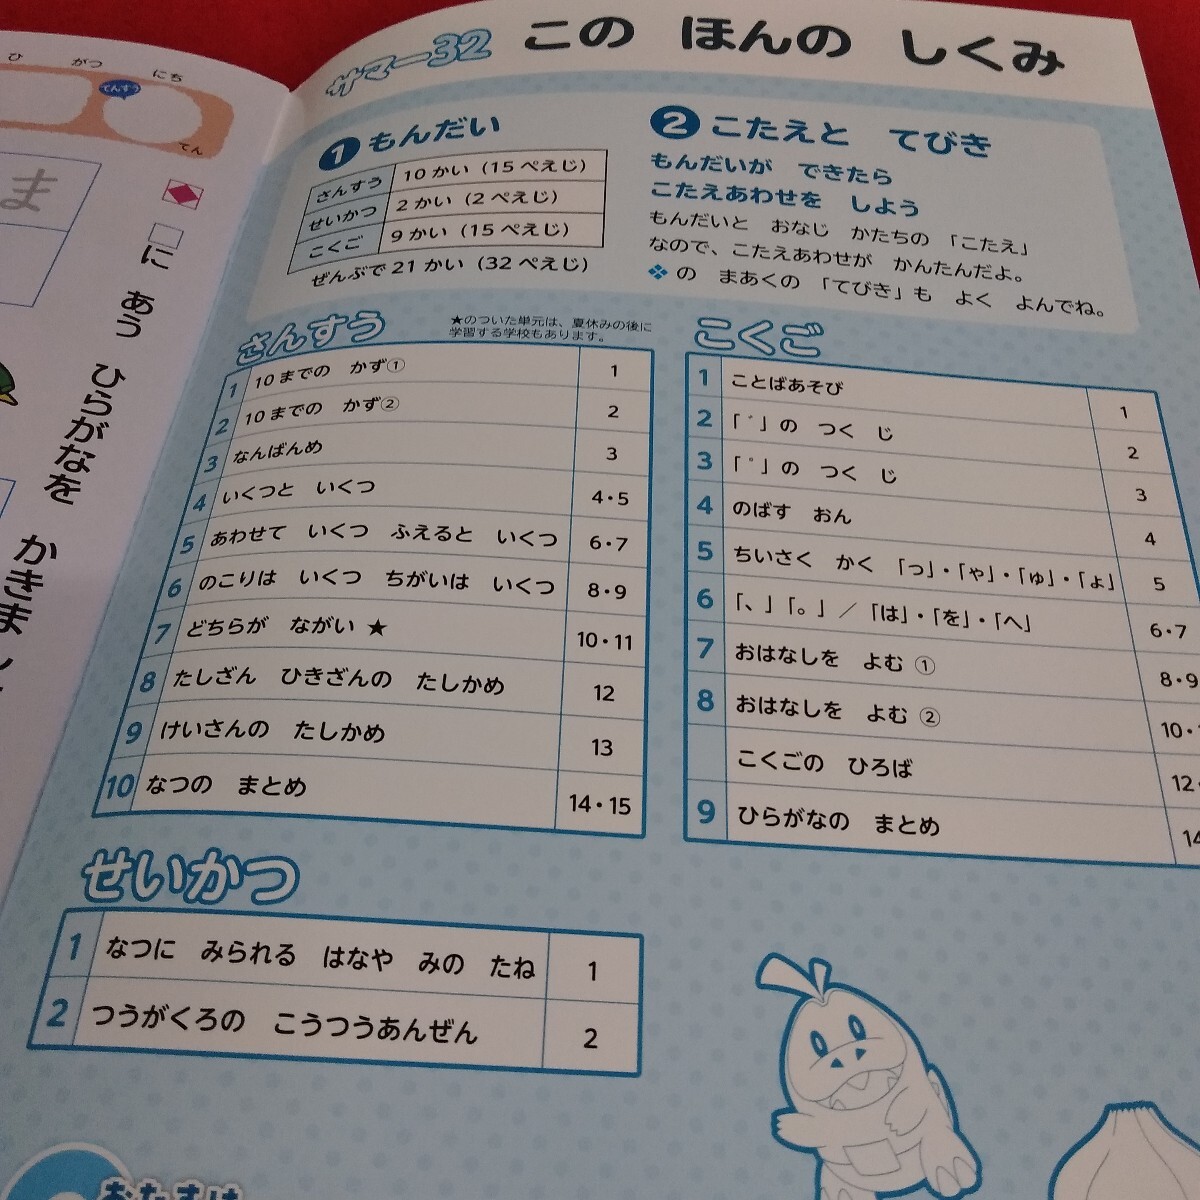 サマー32 この ほんの しくみ
1 もんだい
さんすう 10 かい（15 ぺえじ）
せいかつ 2 かい（2 ぺえじ）
こくご 9 かい（15 ぺえじ）
ぜんぶで 21 かい（32 ぺえじ）
2 こたえと てびき
もんだいが できたら
こたえあわせを しよう
もんだいと おなじ かたちの 「こたえ」
なので、こたえあわせが かんたんだよ。
❖の まあくの 「てびき」も よく よんでね。
さんすう
★のついた単元は、夏休みの後に
学習する学校もあります。
1 10までの かず① 1
2 10までの かず② 2
3 なんばんめ 3
4 いくつと いくつ 4・5
5 あわせて いくつ ふえると いくつ 6・7
6 のこりは いくつ ちがいは いくつ 8・9
7 どちらが ながい ★ 10・11
8 たしざん ひきざんの たしかめ 12
9 けいさんの たしかめ 13
10 なつの まとめ 14・15
こくご
1 ことばあそび 1
2 「゛」の つく じ 2
3 「゜」の つく じ 3
4 のばす おん 4
5 ちいさく かく 「っ」・「ゃ」・「ゅ」・「ょ」 5
6 「、」「。」／「は」・「を」・「へ」 6・7
7 おはなしを よむ ① 8・9
8 おはなしを よむ ② 10・
こくごの ひろば 12・
9 ひらがなの まとめ 14
せいかつ
1 なつに みられる はなや みの たね 1
2 つうがくろの こうつうあんぜん 2
おたすけ
ひ がつ にち
てんすう
てん
ま
□に あう ひらがなを かきまし